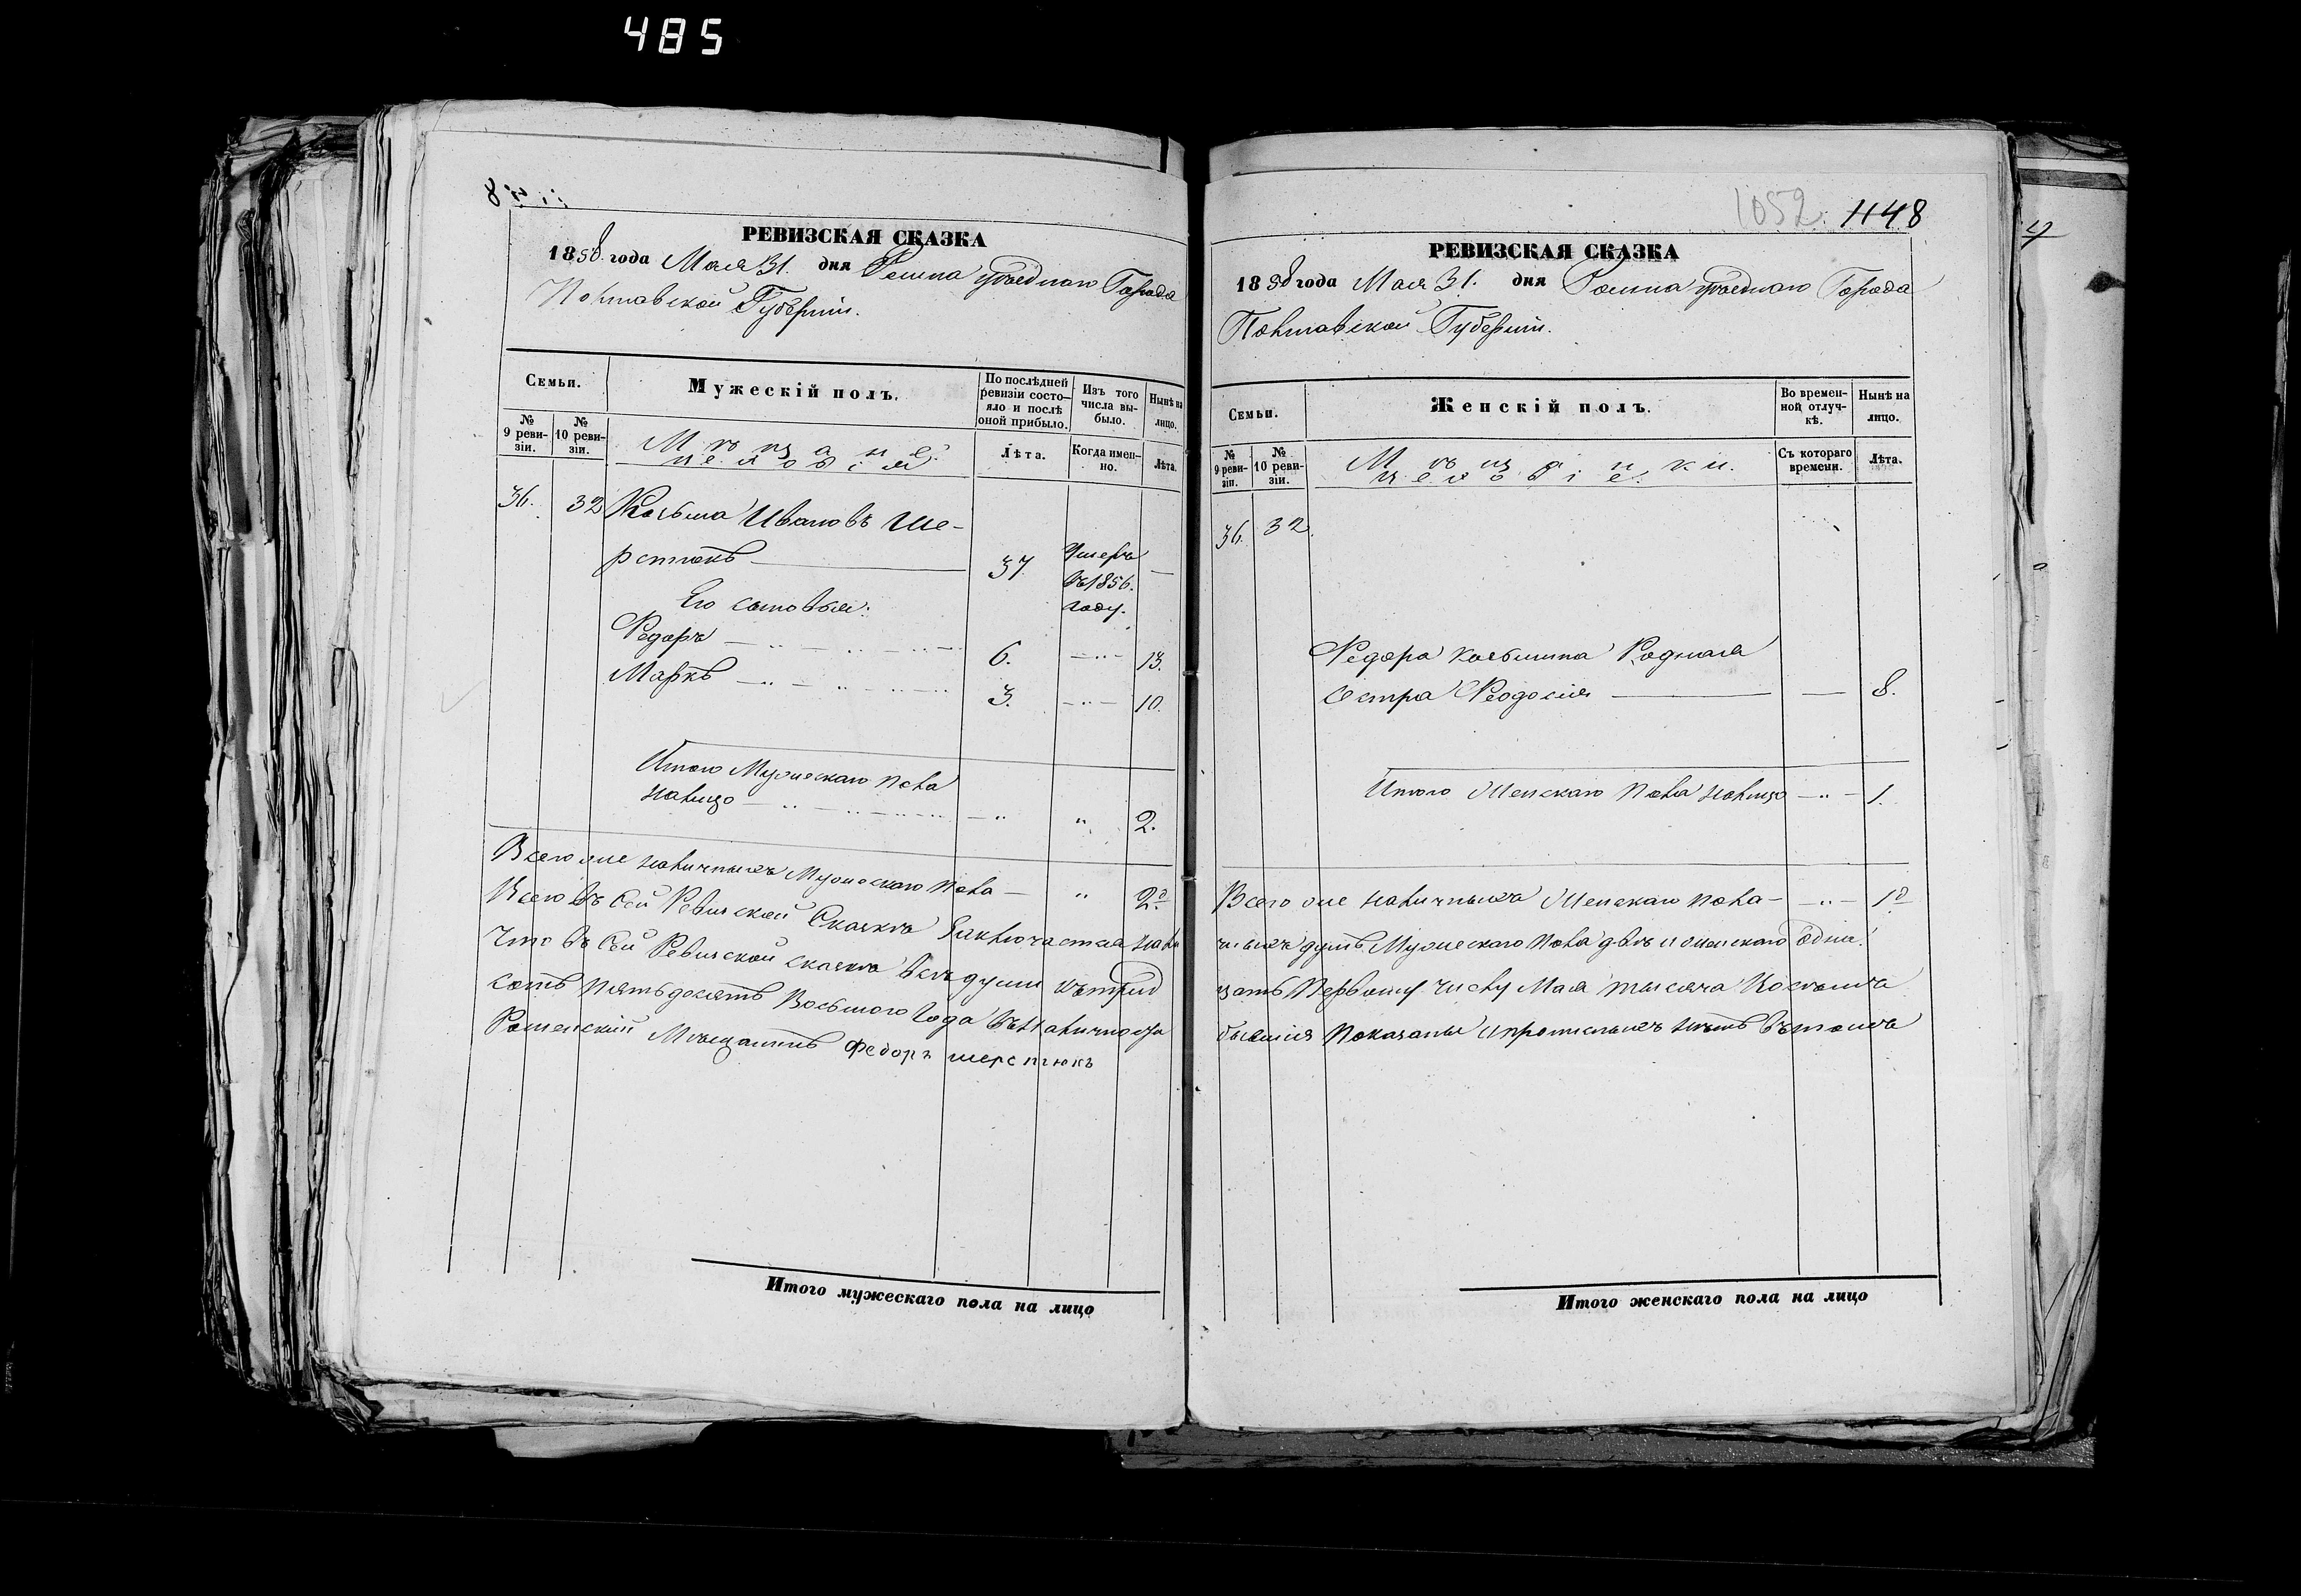 485
РЕВИЗСКАЯ СКАЗКА
1858 года Мая 31. дня Ромна уѣзднаго Города
Полтавской Губерніи.
Семьи.
Мужескій полъ.
По послѣдней ревизіи состояло и послѣ оной прибыло.
Изъ того числа выбыло.
Нынѣ на лицо.
№ 9 ревизіи.
№ 10 ревизіи.
Мѣщане
Лѣта.
Когда именно.
Лѣта.
36. 32 Козьма Ивановъ Ше-
рстюкъ 37 Умеръ въ 1856. году. —
Его сыновья:
Федоръ 6. 13.
Марко 3. 10.
Итого Мужескаго пола
налицо " " 2.
Всего же наличныхъ Мужескаго пола — " 2.
Всего въ сей Ревизской Сказкѣ Заключается нали
Что въ сей Ревизской сказкѣ всѣ души къ трид
сотъ пятьдесятъ Восьмого Года въ наличности
Роменскій Мѣщанинъ Федоръ шерстюкъ
Итого мужескаго пола на лицо
1052. 1148
РЕВИЗСКАЯ СКАЗКА
1858 года Мая 31. дня Ромна уѣзднаго Города
Полтавской Губерніи.
Семьи.
Женскій полъ.
Во временной отлучкѣ.
Нынѣ на лицо.
№ 9 ревизіи.
№ 10 ревизіи.
Мѣщанки.
Съ котораго времени.
Лѣта.
36. 32.
Федора Козьмина Родная
Сестра Феодосія — — 8.
Итого Женскаго пола налицо — 1.
Всего же наличныхъ Женскаго пола — 1
чныхъ душъ Мужескаго пола двѣ и женскаго одна.
цать Первому числу Мая тысяча Восемъ
бывшія показаны и прописныхъ нѣтъ въ томъ
Итого женскаго пола на лицо